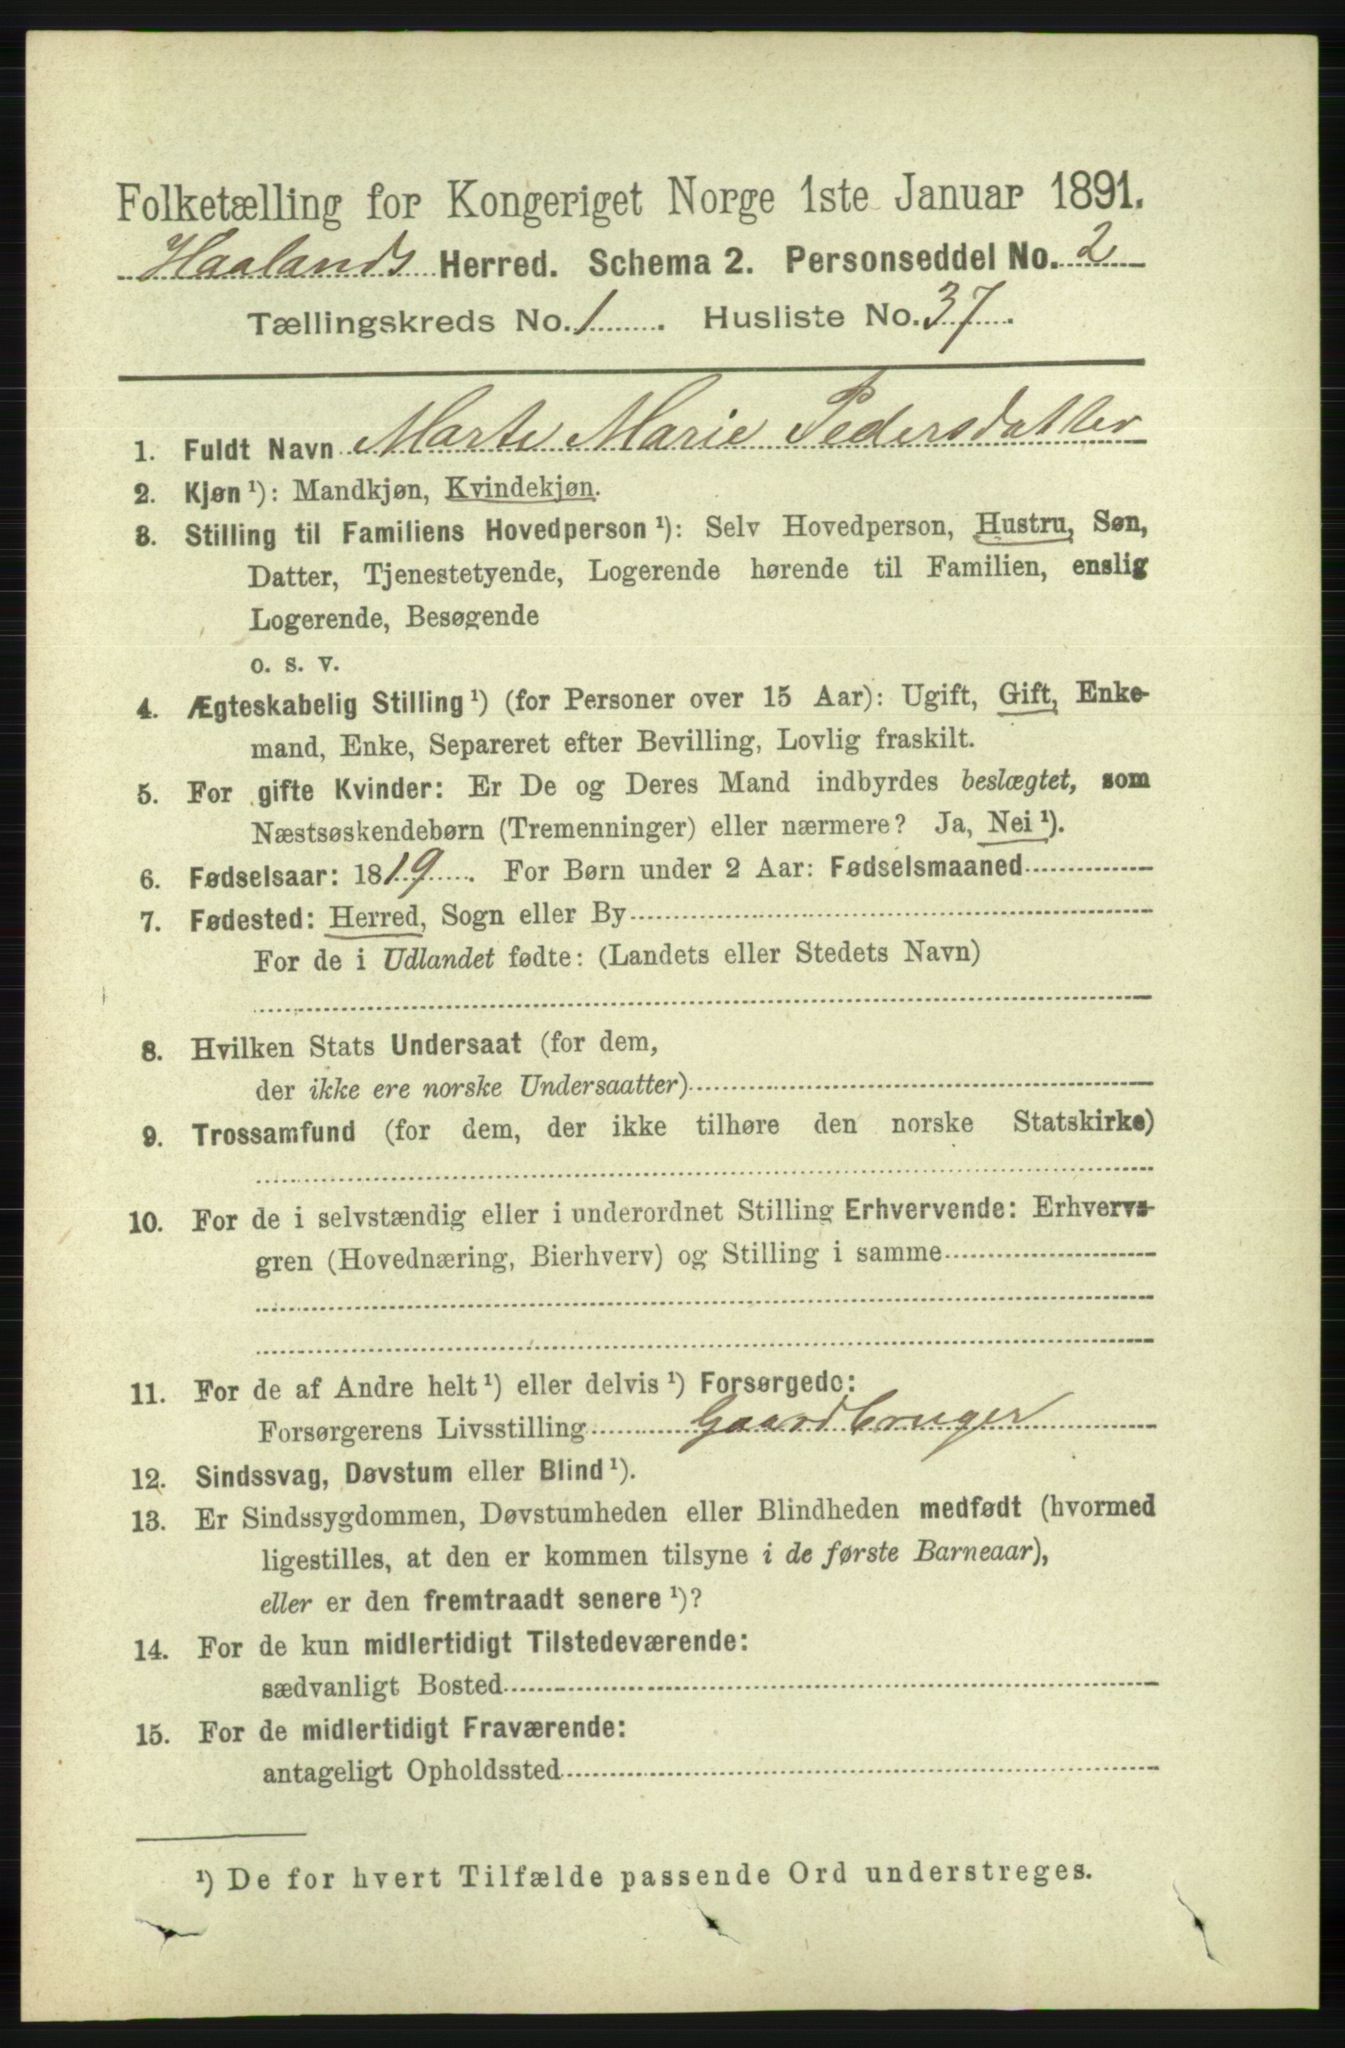 Folketælling for Kongeriget Norge 1ste Januar 1891.
Haalands Herred. Schema 2. Personseddel No. 2
Tællingskreds No. 1. Husliste No. 37.
1. Fuldt Navn Marte Marie Pedersdatter
2. Kjøn ¹): Mandkjøn, Kvindekjøn.
3. Stilling til Familiens Hovedperson ¹): Selv Hovedperson, Hustru, Søn,
Datter, Tjenestetyende, Logerende hørende til Familien, enslig
Logerende, Besøgende
o. s. v.
4. Ægteskabelig Stilling ¹) (for Personer over 15 Aar): Ugift, Gift, Enke-
mand, Enke, Separeret efter Bevilling, Lovlig fraskilt.
5. For gifte Kvinder: Er De og Deres Mand indbyrdes beslægtet, som
Næstsøskendebørn (Tremenninger) eller nærmere? Ja, Nei ¹).
6. Fødselsaar: 1819. For Børn under 2 Aar: Fødselsmaaned
7. Fødested: Herred, Sogn eller By
For de i Udlandet fødte: (Landets eller Stedets Navn)
8. Hvilken Stats Undersaat (for dem,
der ikke ere norske Undersaatter)
9. Trossamfund (for dem, der ikke tilhøre den norske Statskirke)
10. For de i selvstændig eller i underordnet Stilling Erhvervende: Erhvervs-
gren (Hovednæring, Bierhverv) og Stilling i samme
11. For de af Andre helt ¹) eller delvis ¹) Forsørgede:
Forsørgerens Livsstilling Gaardbruger
12. Sindssvag, Døvstum eller Blind ¹).
13. Er Sindssygdommen, Døvstumheden eller Blindheden medfødt (hvormed
ligestilles, at den er kommen tilsyne i de første Barneaar),
eller er den fremtraadt senere ¹)?
14. For de kun midlertidigt Tilstedeværende:
sædvanligt Bosted
15. For de midlertidigt Fraværende:
antageligt Opholdssted
¹) De for hvert Tilfælde passende Ord understreges.